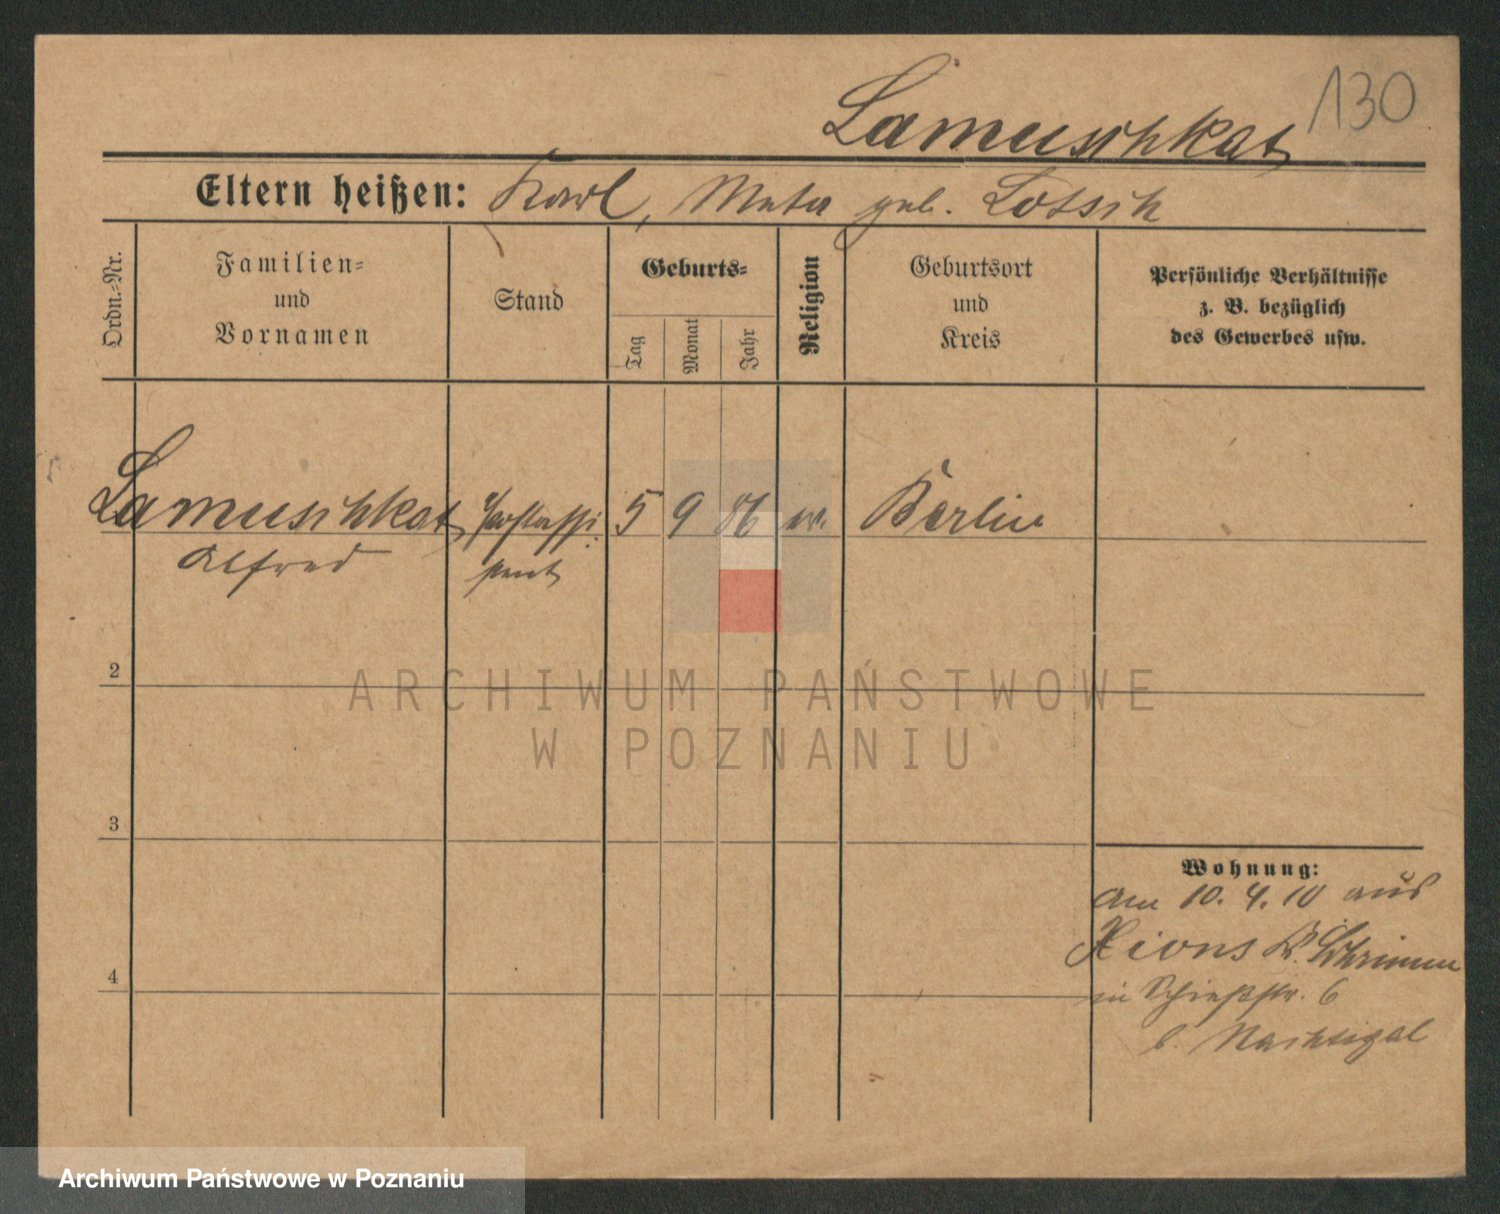 130
Lamuschkat
Eltern heißen: Karl, Meta geb. Lotsch
Ordn.-Nr.
Familien-
und
Vornamen
Stand
Geburts-
Tag
Monat
Jahr
Religion
Geburtsort
und
Kreis
Persönliche Verhältnisse
z. B. bezüglich
des Gewerbes usw.
Lamuschkat
Alfred
5 9 86 ev. Berlin
2
3
4
Wohnung:
am 10. 4. 10 aus
Xions Kr. Schrimm
in Schießstr. 6
b. Nachtigal
ARCHIWUM PAŃSTWOWE
W POZNANIU
Archiwum Państwowe w Poznaniu